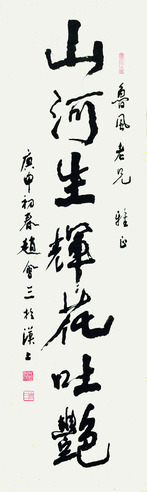 魯風老兄 雅正
山河生輝花吐艷
庚申初春趙會三於漢上